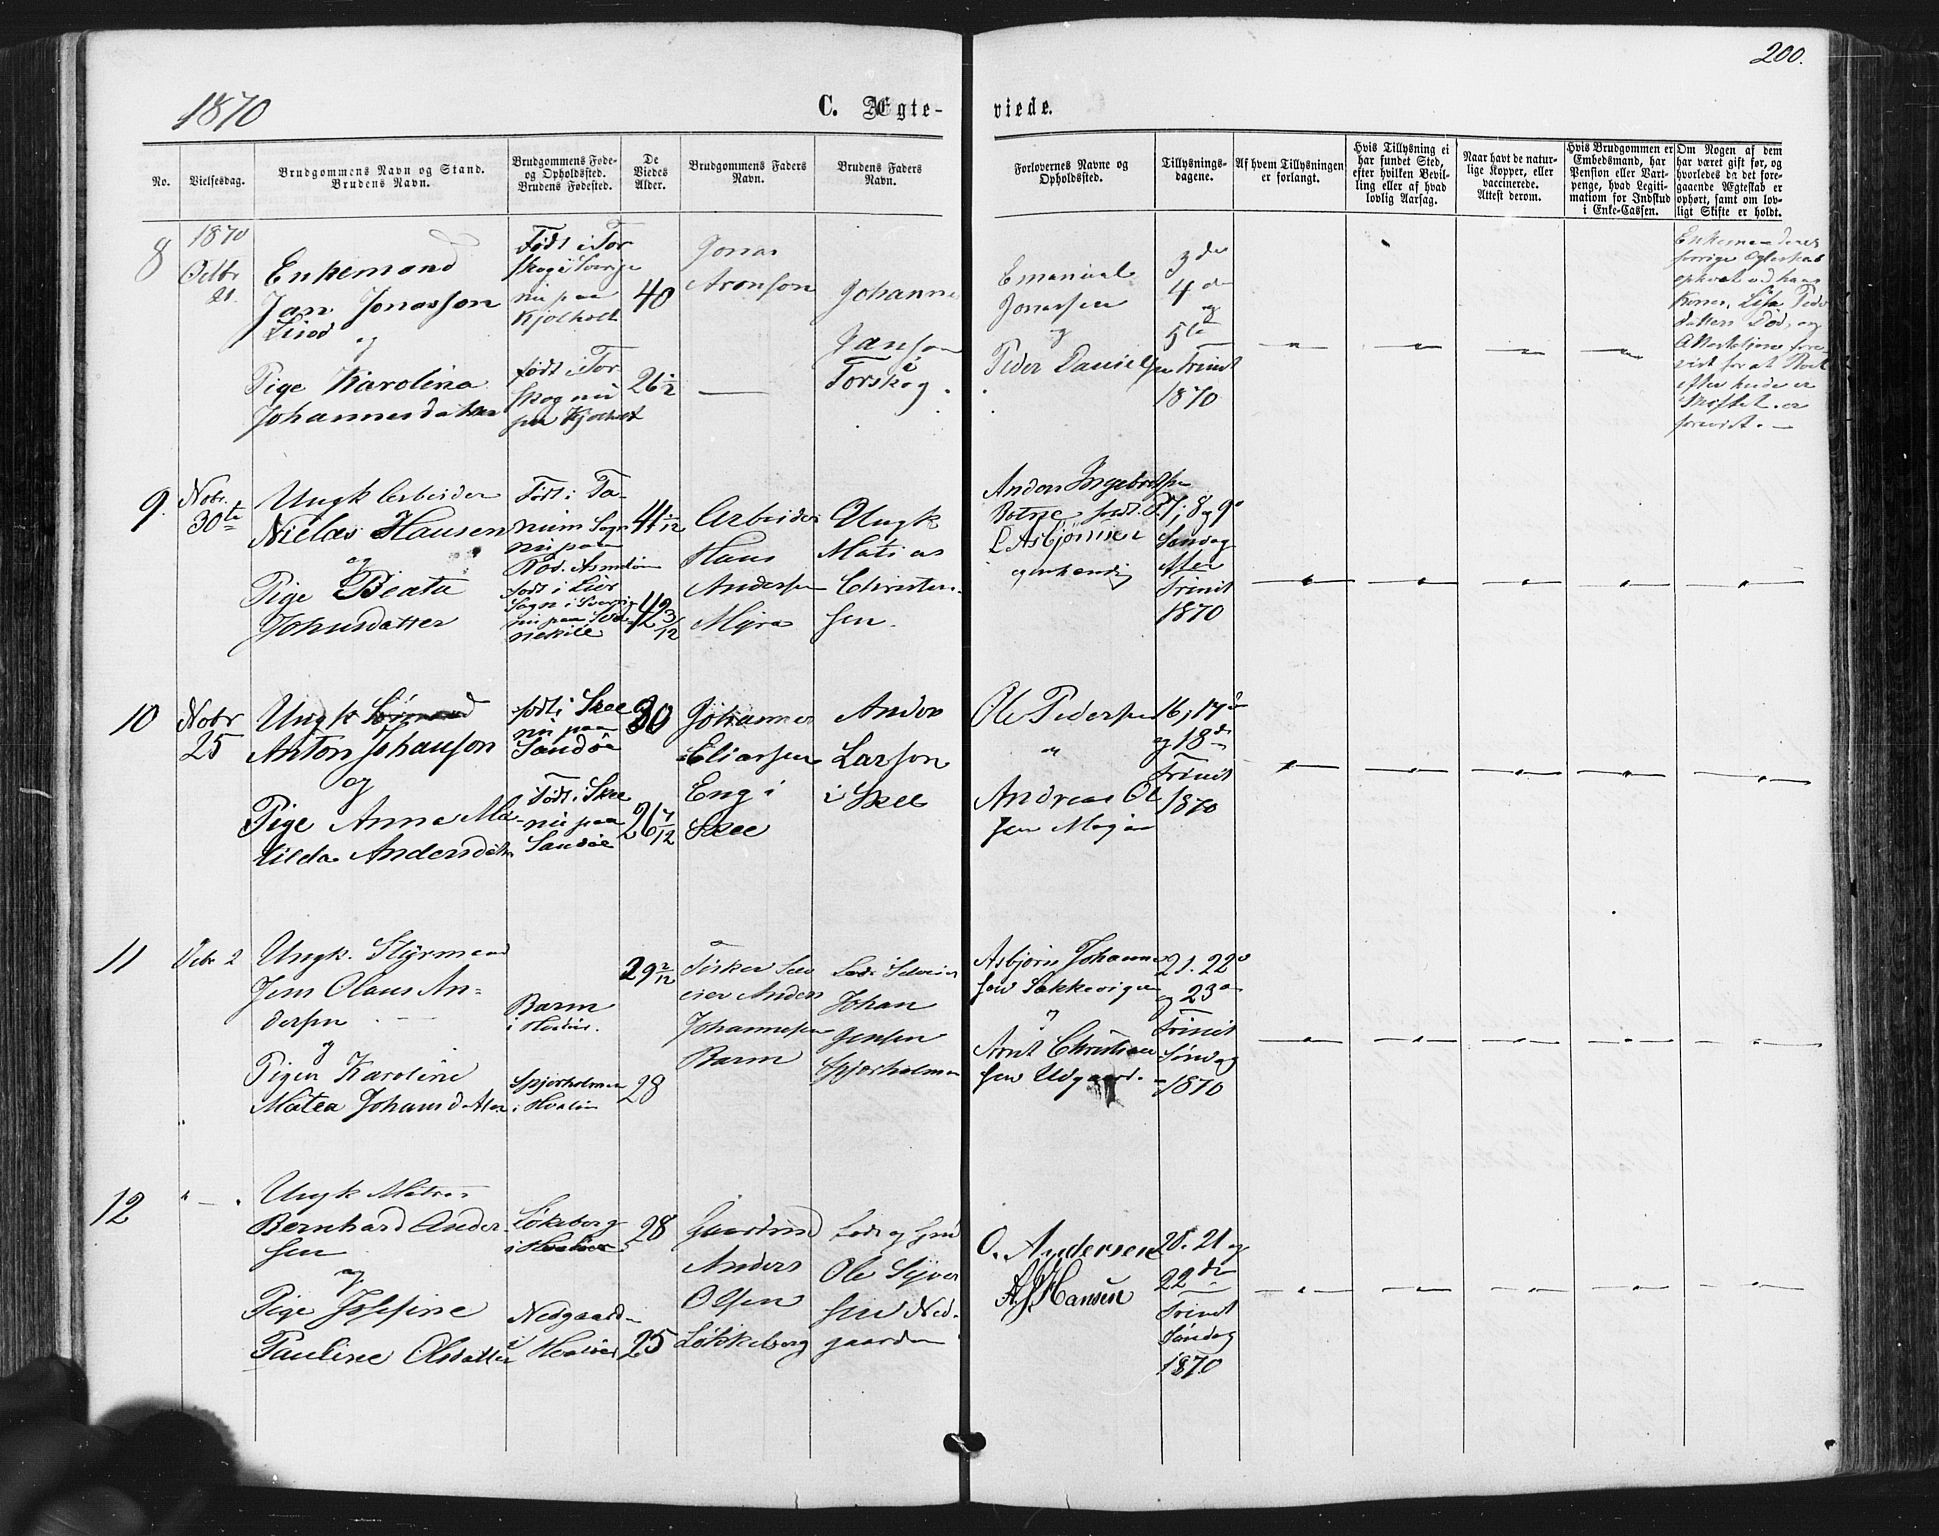 200.
1870
C. Ægte-
viede.
No.
Vielsesdag.
Brudgommens Navn og Stand.
Brudens Navn.
Brudgommens Føde-
og Opholdssted.
Brudens Fødested.
De
Viedes
Alder.
Brudgommens Faders
Navn.
Brudens Faders
Navn.
Forlovernes Navne og
Opholdssted.
Tillysnings-
dagene.
Af hvem Tillysningen
er forlangt.
Hvis Tillysning ei
har fundet Sted,
efter hvilken Bevil-
ling eller af hvad
lovlig Aarsag.
Naar havt de natur-
lige Kopper, eller
vaccinerede.
Attest derom.
Hvis Brudgommen er
Embedsmand, har
Pension eller Vart-
penge, hvad Legiti-
mation for Indskud
i Enke-Cassen.
Om Nogen af dem
har været gift før, og
hvorledes da det fore-
gaaende Ægteskab er
ophørt, samt om lov-
ligt Skifte er holdt.
8
1870
Octbr
21.
Enkemand
Jan Jonasson
Lind
og
Pige Karolina
Johannesdatter
Født i Tor
skog i Sverige
nu paa
Kjølholt
født i Tor
skog nu
paa Kjølholt
40
26 1/2
Jonas
Aronson
Johannes
Janson
i
Torskog.
Emanuel
Jonassen
og
Peder Danielsen
3die
4de
og
5te
Trinit
1870
forrige Ægteskab
ophævet ved hans
Død, og
efter hende er
Skiftet er
forevist.
9.
Nobr.
30te
Ungk Arbeider
Niclas Hansen
og
Pige Beata
Johnsdatter
Født i Ta-
num Sogn
nu paa
født i Lier
Sogn i Sverige
nu paa
41 1/12
42 3/12
Arbeider
Hans
Andersen
Myra
Ungk
Matias
Christen-
sen.
Anders Ingebretsen
L Asbjørnsen
egenhændig
7, 8 og 9de
Søndag
efter
Trinit
1870
10
Nobr
25
Ungk Sømand
Anton Johanson
og
Pige Anna Ma-
tilda Andersdatter
født i Skee
nu paa
Sandøe
Født i Skee
nu paa
Sandøe
30
26 7/12
Johannes
Eliassen
Eng i
Skee
Anders
Larson
i Skee
Ole Pedersen
"
Andreas Ol
sen
16, 17de
og 18de
Trinit
1870
11
Debr 2
Ungk. Styrmand
Jens Olaus An-
dersen
og
Pigen Karoline
Matea Johansdatter
Barm
i Hvaløer.
Spjærholmen
i Hvaløer
29 2/12
28
Fisker Selv
eier Anders
Johannesen
Barm
Lods Selveier
Johan
Jensen
Spjærholmen
Asbjørn Johanne
sen Bækkevigen
og
Arnt Christian
sen Udgaard.
21. 22de
og 23de
Trinit
Søndag
1870
12
" — "
Ungk Matros
Bernhard Ander-
sen
og
Pige Josefine
Pauline Olsdatter
Løkeberg
i Hvaløer
Nedgaarden
i Hvaløer
28
25
Gaardmd
Anders
Olsen
Løkkeberg
Lods og Grd
Ole Syver
sen Ned-
gaarden
O. Andersen
A. J. Hansen
20. 21 og
22de
Trinit
Søndag
1870